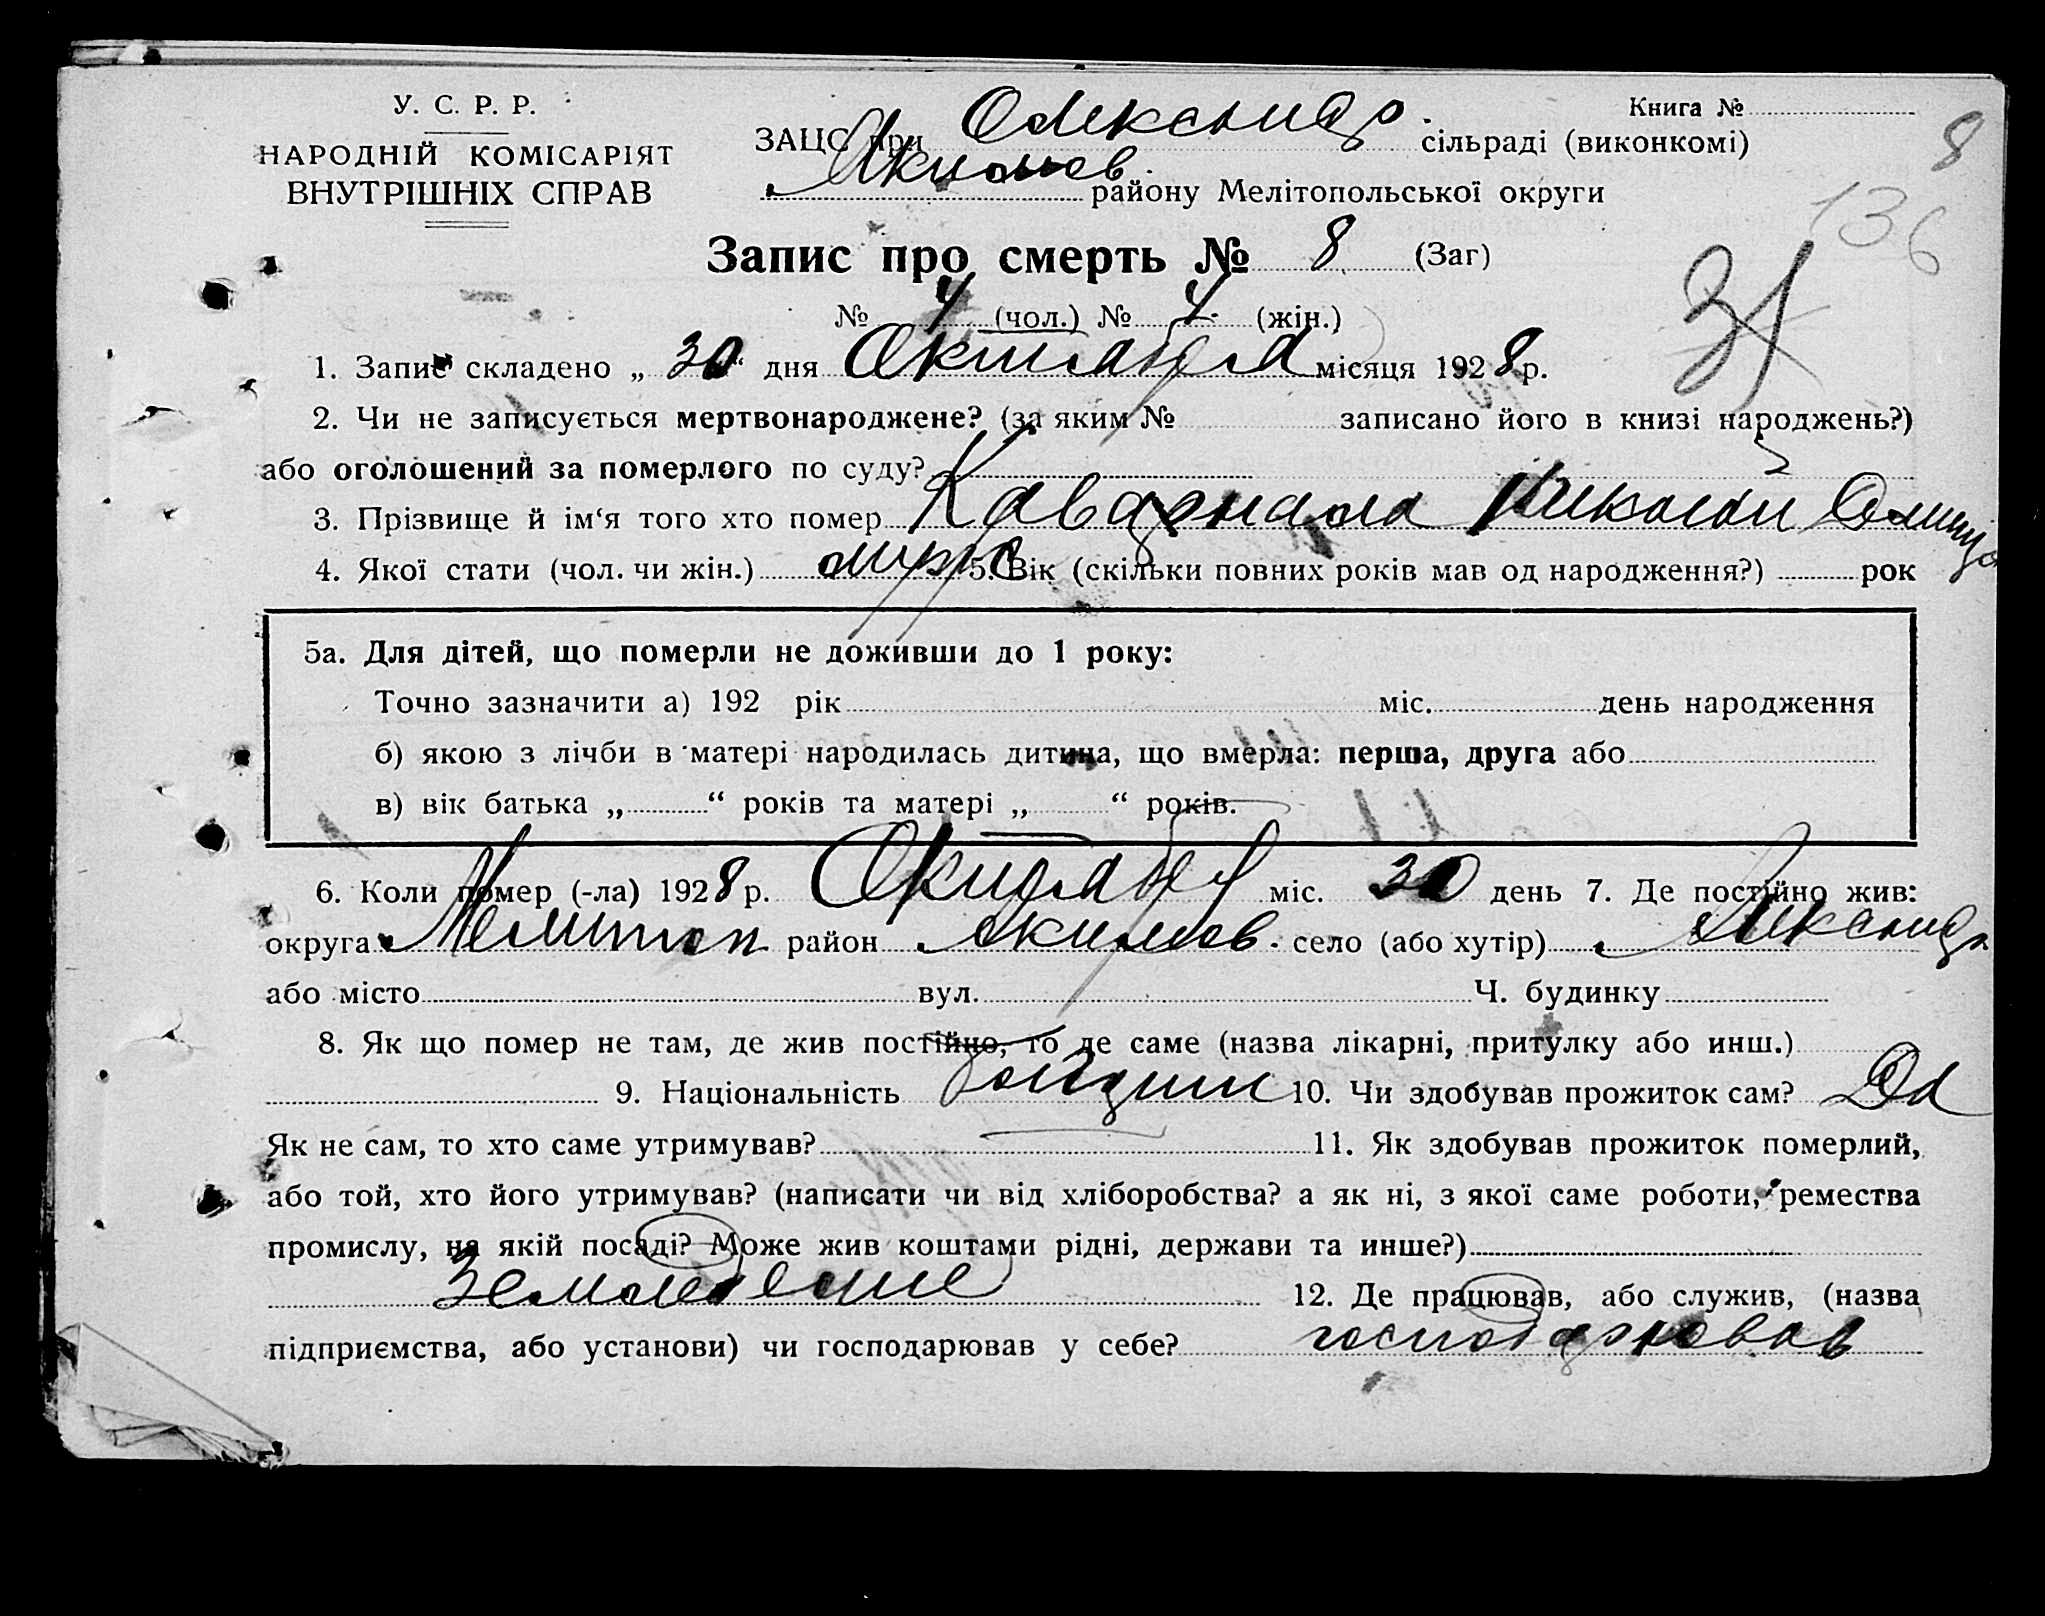 У. С. Р. Р.
НАРОДНІЙ КОМІСАРІЯТ
ВНУТРІШНІХ СПРАВ
Книга №
8
136
31
ЗАЦС при Олександр. сільраді (виконкомі)
Якимов. району Мелітопольської округи
Запис про смерть № 8 (Заг)
№ 4 (чол.) № 4 (жін.)
1. Запис складено „ 30 “ дня Октября місяця 1928 р.
2. Чи не записується мертвонароджене? (за яким № записано його в книзі народжень?)
або оголошений за померлого по суду?
3. Прізвище й ім‘я того хто помер Николай
4. Якої стати (чол. чи жін.) муж 5. Вік (скільки повних років мав од народження?) рок
5а. Для дітей, що померли не доживши до 1 року:
Точно зазначити а) 192 рік міс. день народження
б) якою з лічби в матері народилась дитина, що вмерла: перша, друга або
в) вік батька „ “ років та матері „ “ років.
6. Коли помер (-ла) 1928 р. Октября міс. 30 день 7. Де постійно жив:
округа Мелитоп район Якимов. село (або хутір) Александр
або місто вул. Ч. будинку
8. Як що помер не там, де жив постійно, то де саме (назва лікарні, притулку або инш.)
9. Національність 10. Чи здобував прожиток сам? Да
Як не сам, то хто саме утримував? 11. Як здобував прожиток померлий,
або той, хто його утримував? (написати чи від хліборобства? а як ні, з якої саме роботи, ремества
промислу, на якій посаді? Може жив коштами рідні, держави та инше?)
Земледелие 12. Де працював, або служив, (назва
підприємства, або установи) чи господарював у себе? господарював